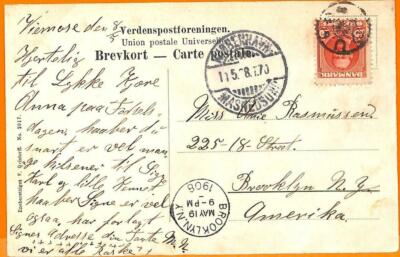 Viemose den 8/5
Hertelig
til Lykke Kjere
Anna paa Fødsels-
dagen, haaber du
snart er vel man
ge hilsener til Signe
Karl og lille Knud
haaber Signe er vel
ogsaa, har forlagt
Signes Adresse din Tante M.
vi er alle raske!
Verdenspostforeningen.
Union postale Universelle
Brevkort — Carte postale.
Eneberettiget
No. 2017.
KJØBENHAVN
11.5.08
MASKEUSUM
DANMARK
Miss Anne Rasmussen
225-18- Street.
Brooklyn N.Y.
Amerika.
BROOKLYN, N.Y.
MAY 19
9-PM
1908